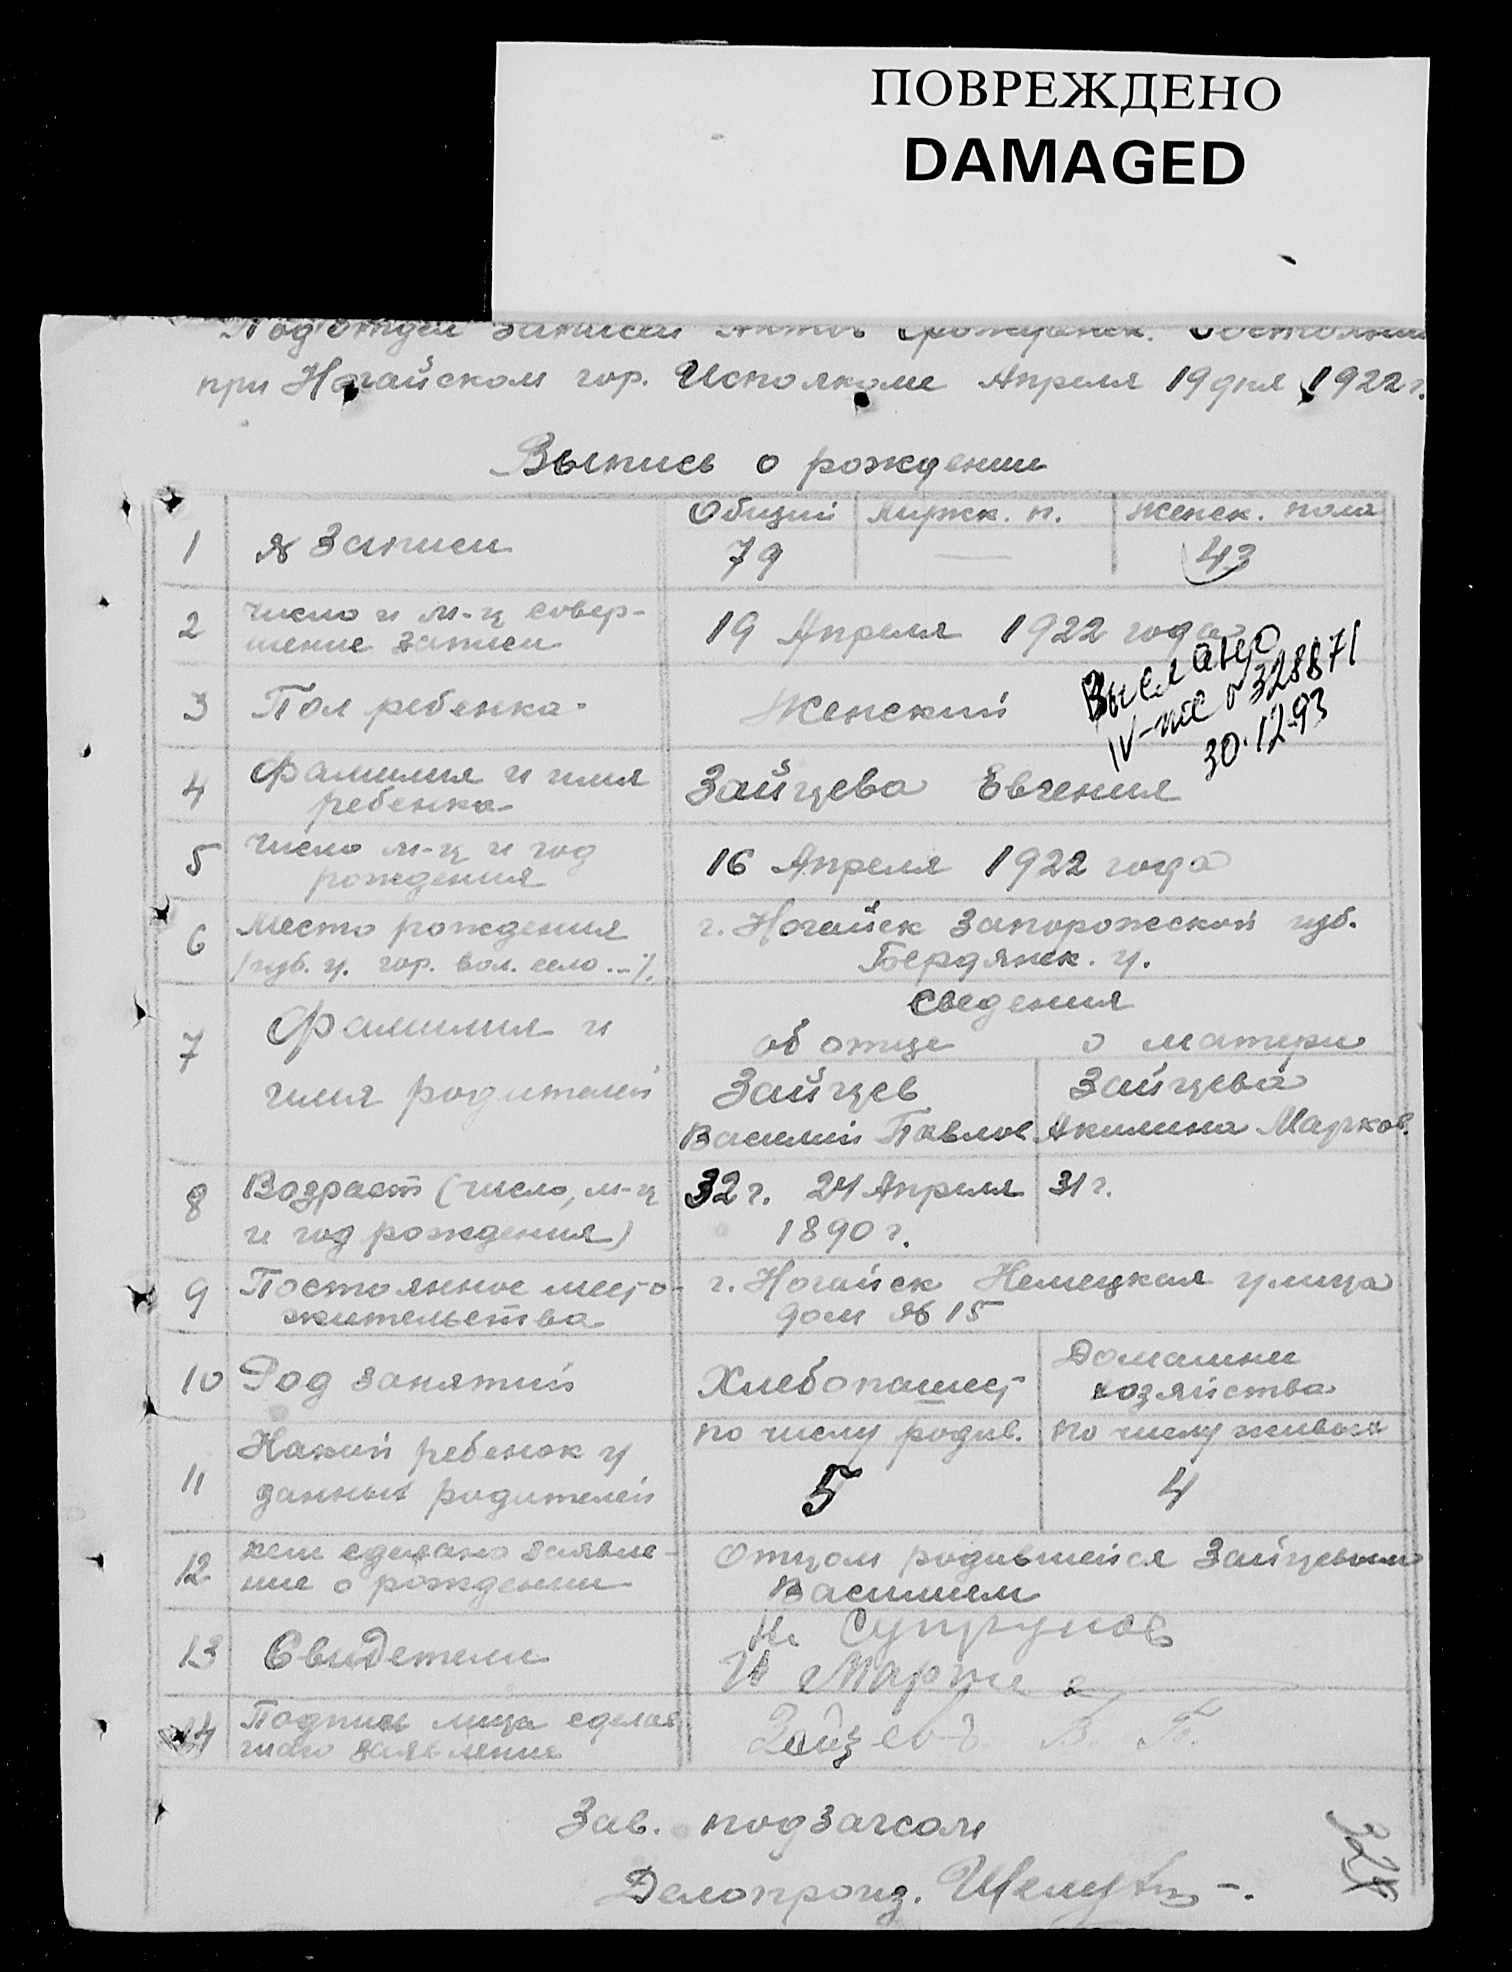 ПОВРЕЖДЕНО
DAMAGED
Подотдел Записей Актов Гражданск. Состояния
при Ногайском гор. Исполкоме Апреля 19 дня 1922 г.
Выпись о рождении
1 № Записи Общий 79 Мужск. п. — Женск. пола 43
2 Число и м-ц совер-
шение записи 19 Апреля 1922 года
3 Пол ребенка Женский
Выслано
IV-пс 0328871
30.12.93
4 Фамилия и имя
ребенка Зайцева Евгения
5 Число м-ц и год
рождения 16 Апреля 1922 года
6 Место рождения г. Ногайск Запорожской губ.
(губ. у. гор. вол. село...) Бердянск. у.
сведения
7 Фамилия и об отце о матери
имя родителей Зайцев Зайцева
Василий Павлов Акилина Марков.
8 Возраст (число, м-ц 32 г. 24 Апреля 31 г.
и год рождения) 1890 г.
9 Постоянное место- г. Ногайск Немецкая улица
жительства дом № 15
10 Род занятий Хлебопашец Домашни
хозяйства
11 Какой ребенок у по числу родив. по числу живых
данных родителей 5 4
12 кем сделано заявле- Отцом родившейся Зайцевым
ние о рождении Василием
13 Свидетели Н. Супрунов
И
14 Подпись лица сделав
шаго заявление Зайцевъ В. П.
Зав. подзагсом
Делопроиз.
328